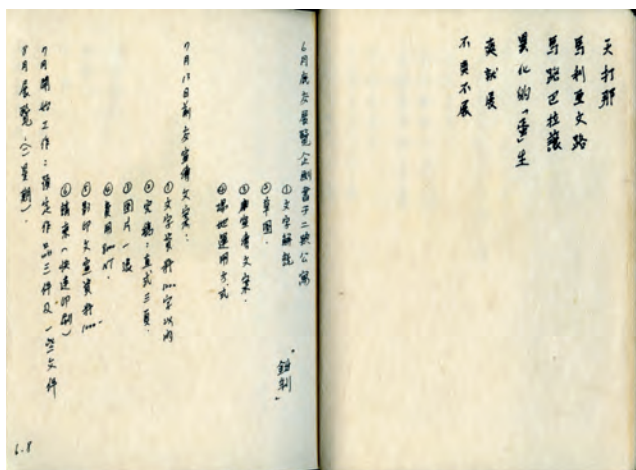 天打那
馬利亞文路
馬路巴拉讓
異化的「蛋」生
爽就展
不爽不展
6月底交展覽企劃書于二號公寓
①文字解說
②草圖.
③廣宣傳文案.
④場地運用方式
"鉛刻"
7月15日前交宣傳文案:
①文字資料1000字以內
②完稿:直式三頁.
③圖片一張
④費用800NT.
⑤影印文宣資料1000-
⑥請柬(快速印刷)
7月開始工作:預定作品三件及一些文件
8月展覽.(二星期).
6.8